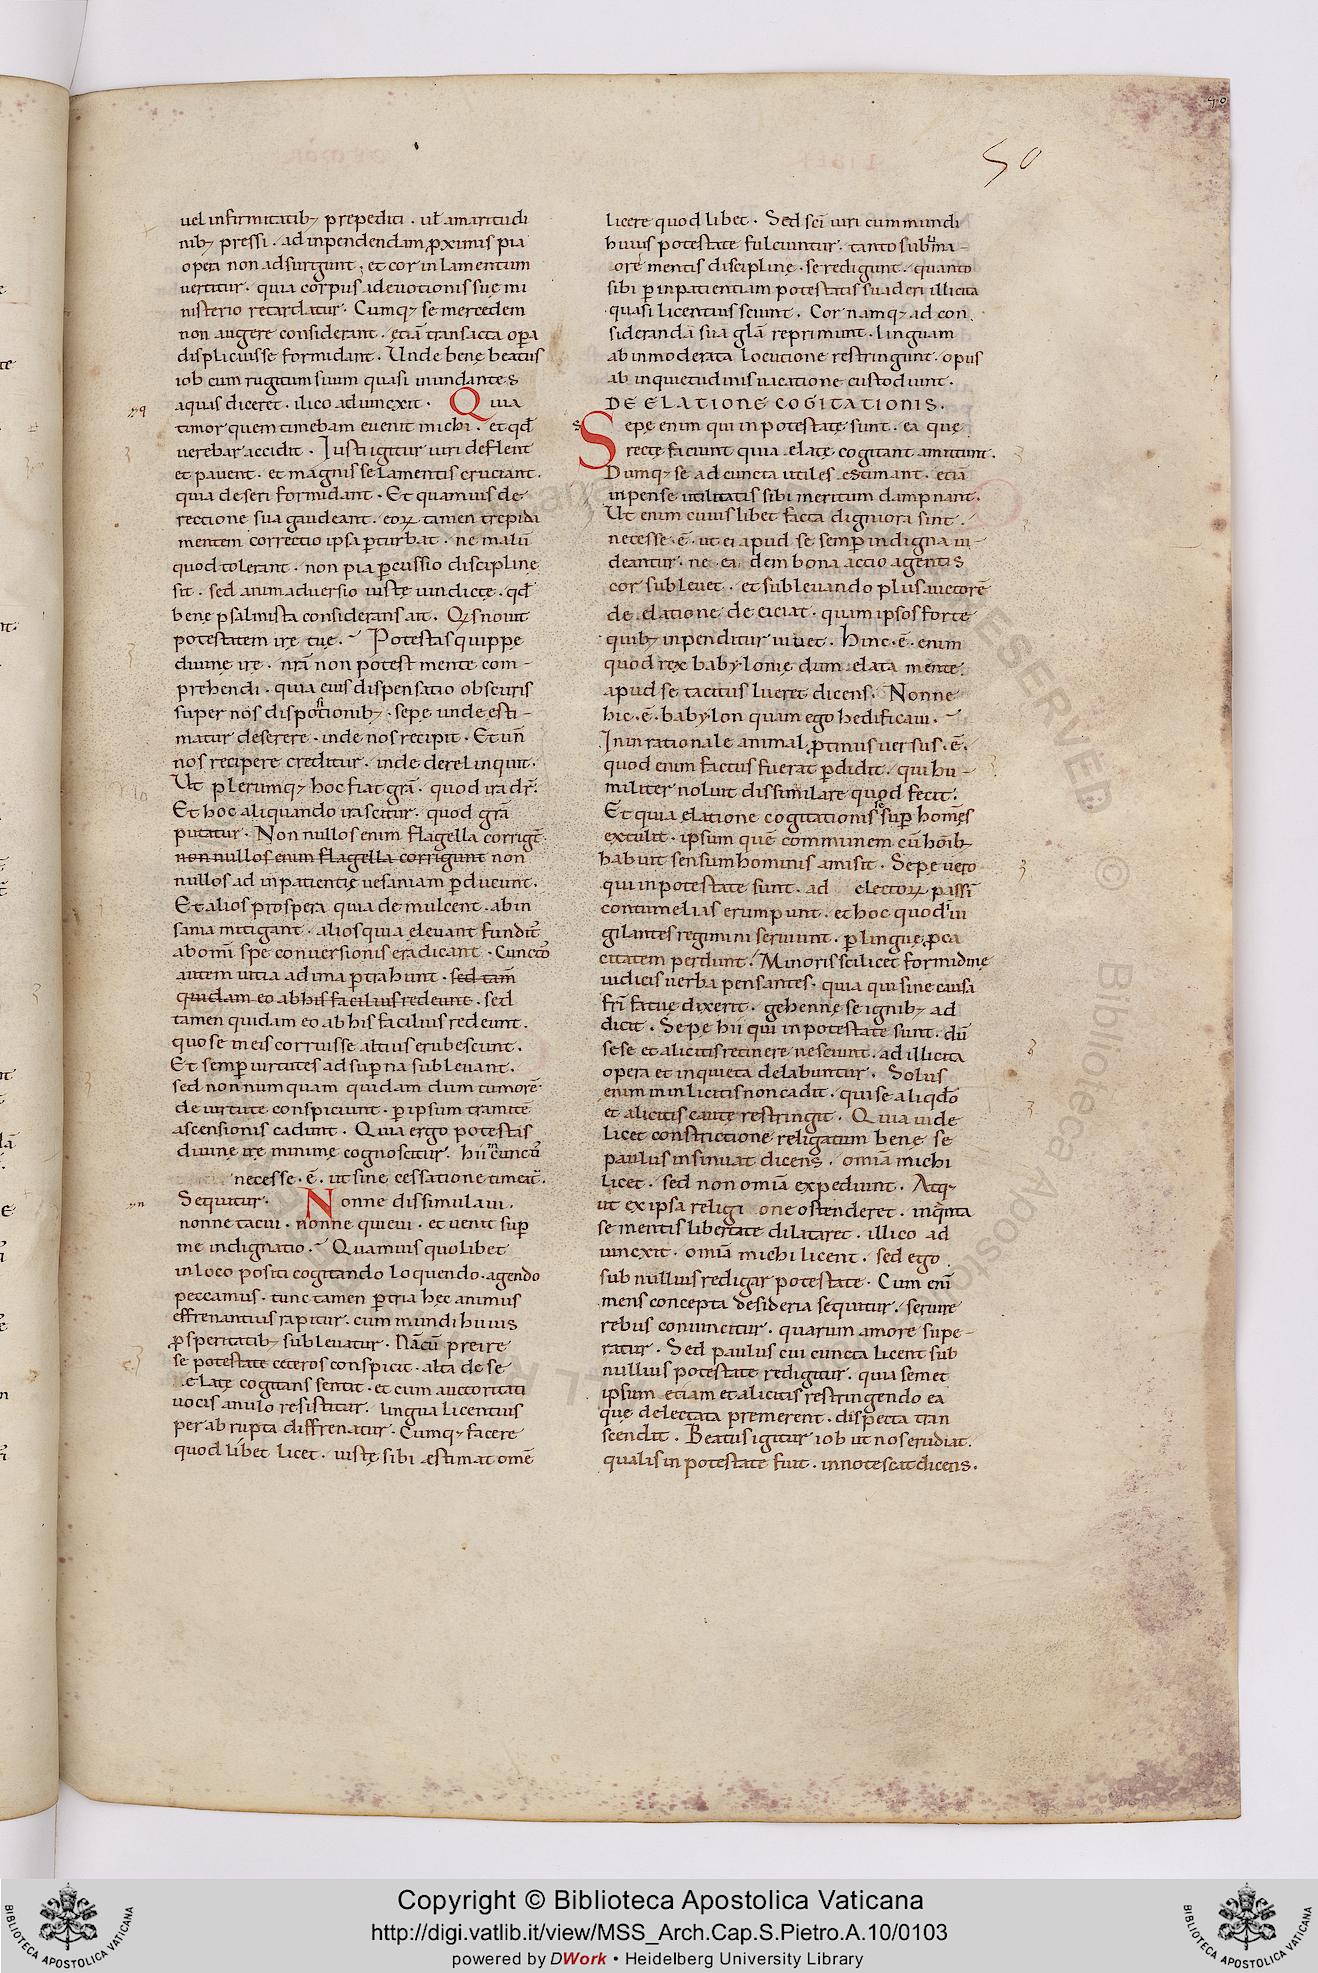 50
50
uel infirmitatib; prepediti . ul̄ amaritudi
nib; pressi . ad inpendendam ꝓximis pia
opera non adsurgunt ; et cor in lamentum
uertitur . quia corpus adeuotionis suę mi
nisterio retardatur . Cumq; se mercedem
non augere considerant . etiā transacta oꝑa
displicuisse formidant . Unde bene beatus
iob cum rugitum suum quasi inundantes
aquas diceret . ilico adiunxit . Quia
timor quem timebam euenit michi . et qđ
uerebar accidit . Iusti igitur uiri deflent
et pauent . et magnis se lamentis cruciant .
quia deseri formidant . Et quamuis de
reccione sua gaudeant . eoꝝ tamen trepida
mentem correctio ipsa ꝑturbat . ne malū
quod tolerant . non pia ꝑcussio discipline
sit . sed animaduersio iustę uindictę . qđ
bene psalmista considerans ait . Q;s nouit
potestatem irę tuę . Potestas quippe
diuinę irę . nr̄a non potest mente com-
prehendi . quia eius dispensatio obscuris
super nos disposi͡tionib; . sepe unde esti-
matur deserere . inde nos recipit . Et un̄
nos recipere creditur . inde derelinquit .
Ut plerumq; hoc fiat gr̄a . quod ira dr̄ .
Et hoc aliquando irascitur . quod gr̄a
putatur . Non nullos enim flagella corrigt̄
non nullos enim flagella corrigunt non
nullos ad inpatientię uesaniam ꝑducunt .
Et alios prospera quia demulcent . ab in
sania mitigant . alios quia eleuant fundit̄
ab om̄i spe conuersionis eradicant . Cunctos
autem uitia ad ima ꝑtrahunt . sed tam̄
quidam eo ab his facilius redeunt . sed
tamen quidam eo ab his facilius redeunt .
quo se in eis corruisse altius erubescunt .
Et semꝑ uirtutes ad suꝑna subleuant .
sed non numquam quidam dum tumorē
de uirtute conspiciunt . ꝑ ipsum tramitē
ascensionis cadunt . Quia ergo potestas
diuinę irę minime cognoscitur . hii
necesse . ē . ut sine cessatione timeat̄ .
Sequitur . Nonne dissimulaui .
nonne tacui . nonne quieui . et uenit suꝑ
me indignatio . Quamuis quolibet
in loco positi cogitando loquendo . agendo
peccamus . tunc tamen ꝑ tria hęc animus
effrenantius rapitur . cum mundi huius
ꝓsperitatib; subleuatur . Nā cū preire
se potestate ceteros conspicit . alta de se
elatę cogitans sentit . et cum auctoritati
uocis a nullo resistitur . lingua licentius
per abrupta diffrenatur . Cumq; facere
quod libet licet . iustę sibi ęstimat omē
licere quod libet . Sed sc̄i uiri cum mundi
huius potestate fulciuntur . tanto sub ma-
iore mentis disciplinę . se redigunt . quanto
sibi ꝑ inpatientiam potestatis suaderi illicita
quasi licentius sciunt . Cor namq; ad con
siderandā suā gl̄a reprimunt . linguam
ab inmoderata locutione restringunt . opus
ab inquietudinis uacatione custodiunt .
DE ELATIONE COGITATIONIS .
Sepe enim qui in potestate sunt . ea quę
rectę faciunt quia elatę cogitant amittunt .
Dumq; se ad cuncta utiles estimant . etiā
inpensę utilitatis sibi meritum dampnant .
Ut enim cuius libet facta digniora sint .
necesse . ē . ut ei apud se semꝑ indigna ui-
deantur . ne ea dem bona accio agentis
cor subleuet . et subleuando plus auctorē
de elatione deiciat . quam ipsos forte
quib; inpenditur iuuet . Hinc . ē . enim
quod rex babylonię dum elata mente
apud se tacitus lueret dicens . Nonne
hic . ē . babylon quam ego hedificaui .
In inrationale animal ꝓtinus uersus . ē .
quod enim factus fuerat ꝑdidit . qui hu-
militer noluit dissimilare quod fecit .
Et quia elatione cogitationis se suꝑ homīes
extulit . ipsum quē communem cū hoīb;
habuit sensum hominis amisit . Sepe uero
qui in potestate sunt . ad electoꝝ passī
contumelias erumpunt . et hoc quod ui
gilantes regimini seruiunt . ꝑ linguę ꝓca
citatem perdunt . Minoris scilicet formidine
iudicis uerba pensantes . quia qui sine causa
fr̄i fatue dixerit . gehennę se ignib; ad
dicit . Sepe hii qui in potestate sunt . dū
sese et a licitis retinere nesciunt . ad illicita
opera et inquieta delabuntur . Solus
enim in inlicitis non cadit . qui se aliqđo
et a licitis cautę restringit . Quia uide
licet constrictione religatum bene se
paulus insinuat dicens . om̄ia michi
licet . sed non om̄ia expediunt . Atq;
ut ex ipsa religione ostenderet . in quanta
se mentis libertate dilataret . illico ad
iunxit . om̄ia michi licent . sed ego
sub nullius redigar potestate . Cum enī
mens concepta desideria sequitur . seruire
rebus conuincitur . quarum amore supe-
ratur . Sed paulus cui cuncta licent sub
nullius potestate redigitur . quia semet
ipsum etiam et a licitis restringendo ea
quę delectata premerent . dispecta tran
scendit . Beatus igitur iob ut nos erudiat .
qualis in potestate fuit . innotescat dicens .
Copyright © Biblioteca Apostolica Vaticana
http://digi.vatlib.it/view/MSS_Arch.Cap.S.Pietro.A.10/0103
powered by DWork • Heidelberg University Library
BIBLIOTECA APOSTOLICA VATICANA
BIBLIOTECA APOSTOLICA VATICANA